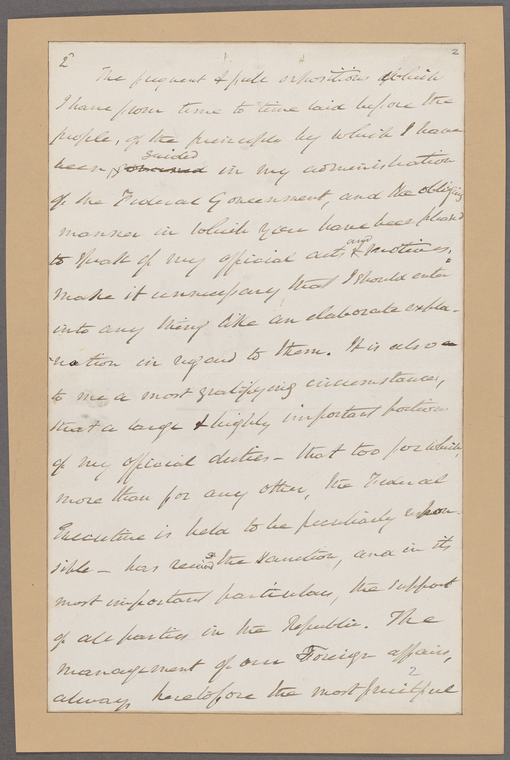 2 2
The frequent & full expositions which
I have from time to time laid before the
people, of the principles by which I have
been guided in my administration
of the Federal Government, and the obliging
manner in which you have been pleased
to speak of my official acts & and motives,
make it unnecessary that I should enter
into any thing like an elaborate expla-
nation in regard to them. It is also
to me a most gratifying circumstance,
that a large & highly important portion
of my official duties – that too for which,
more than for any other, the Federal
Executive is held to be peculiarly respon-
sible – has received the sanction, and in its
most important particulars, the support
of all parties in the Republic. The
management of our Foreign affairs,
always heretofore the most fruitful
2